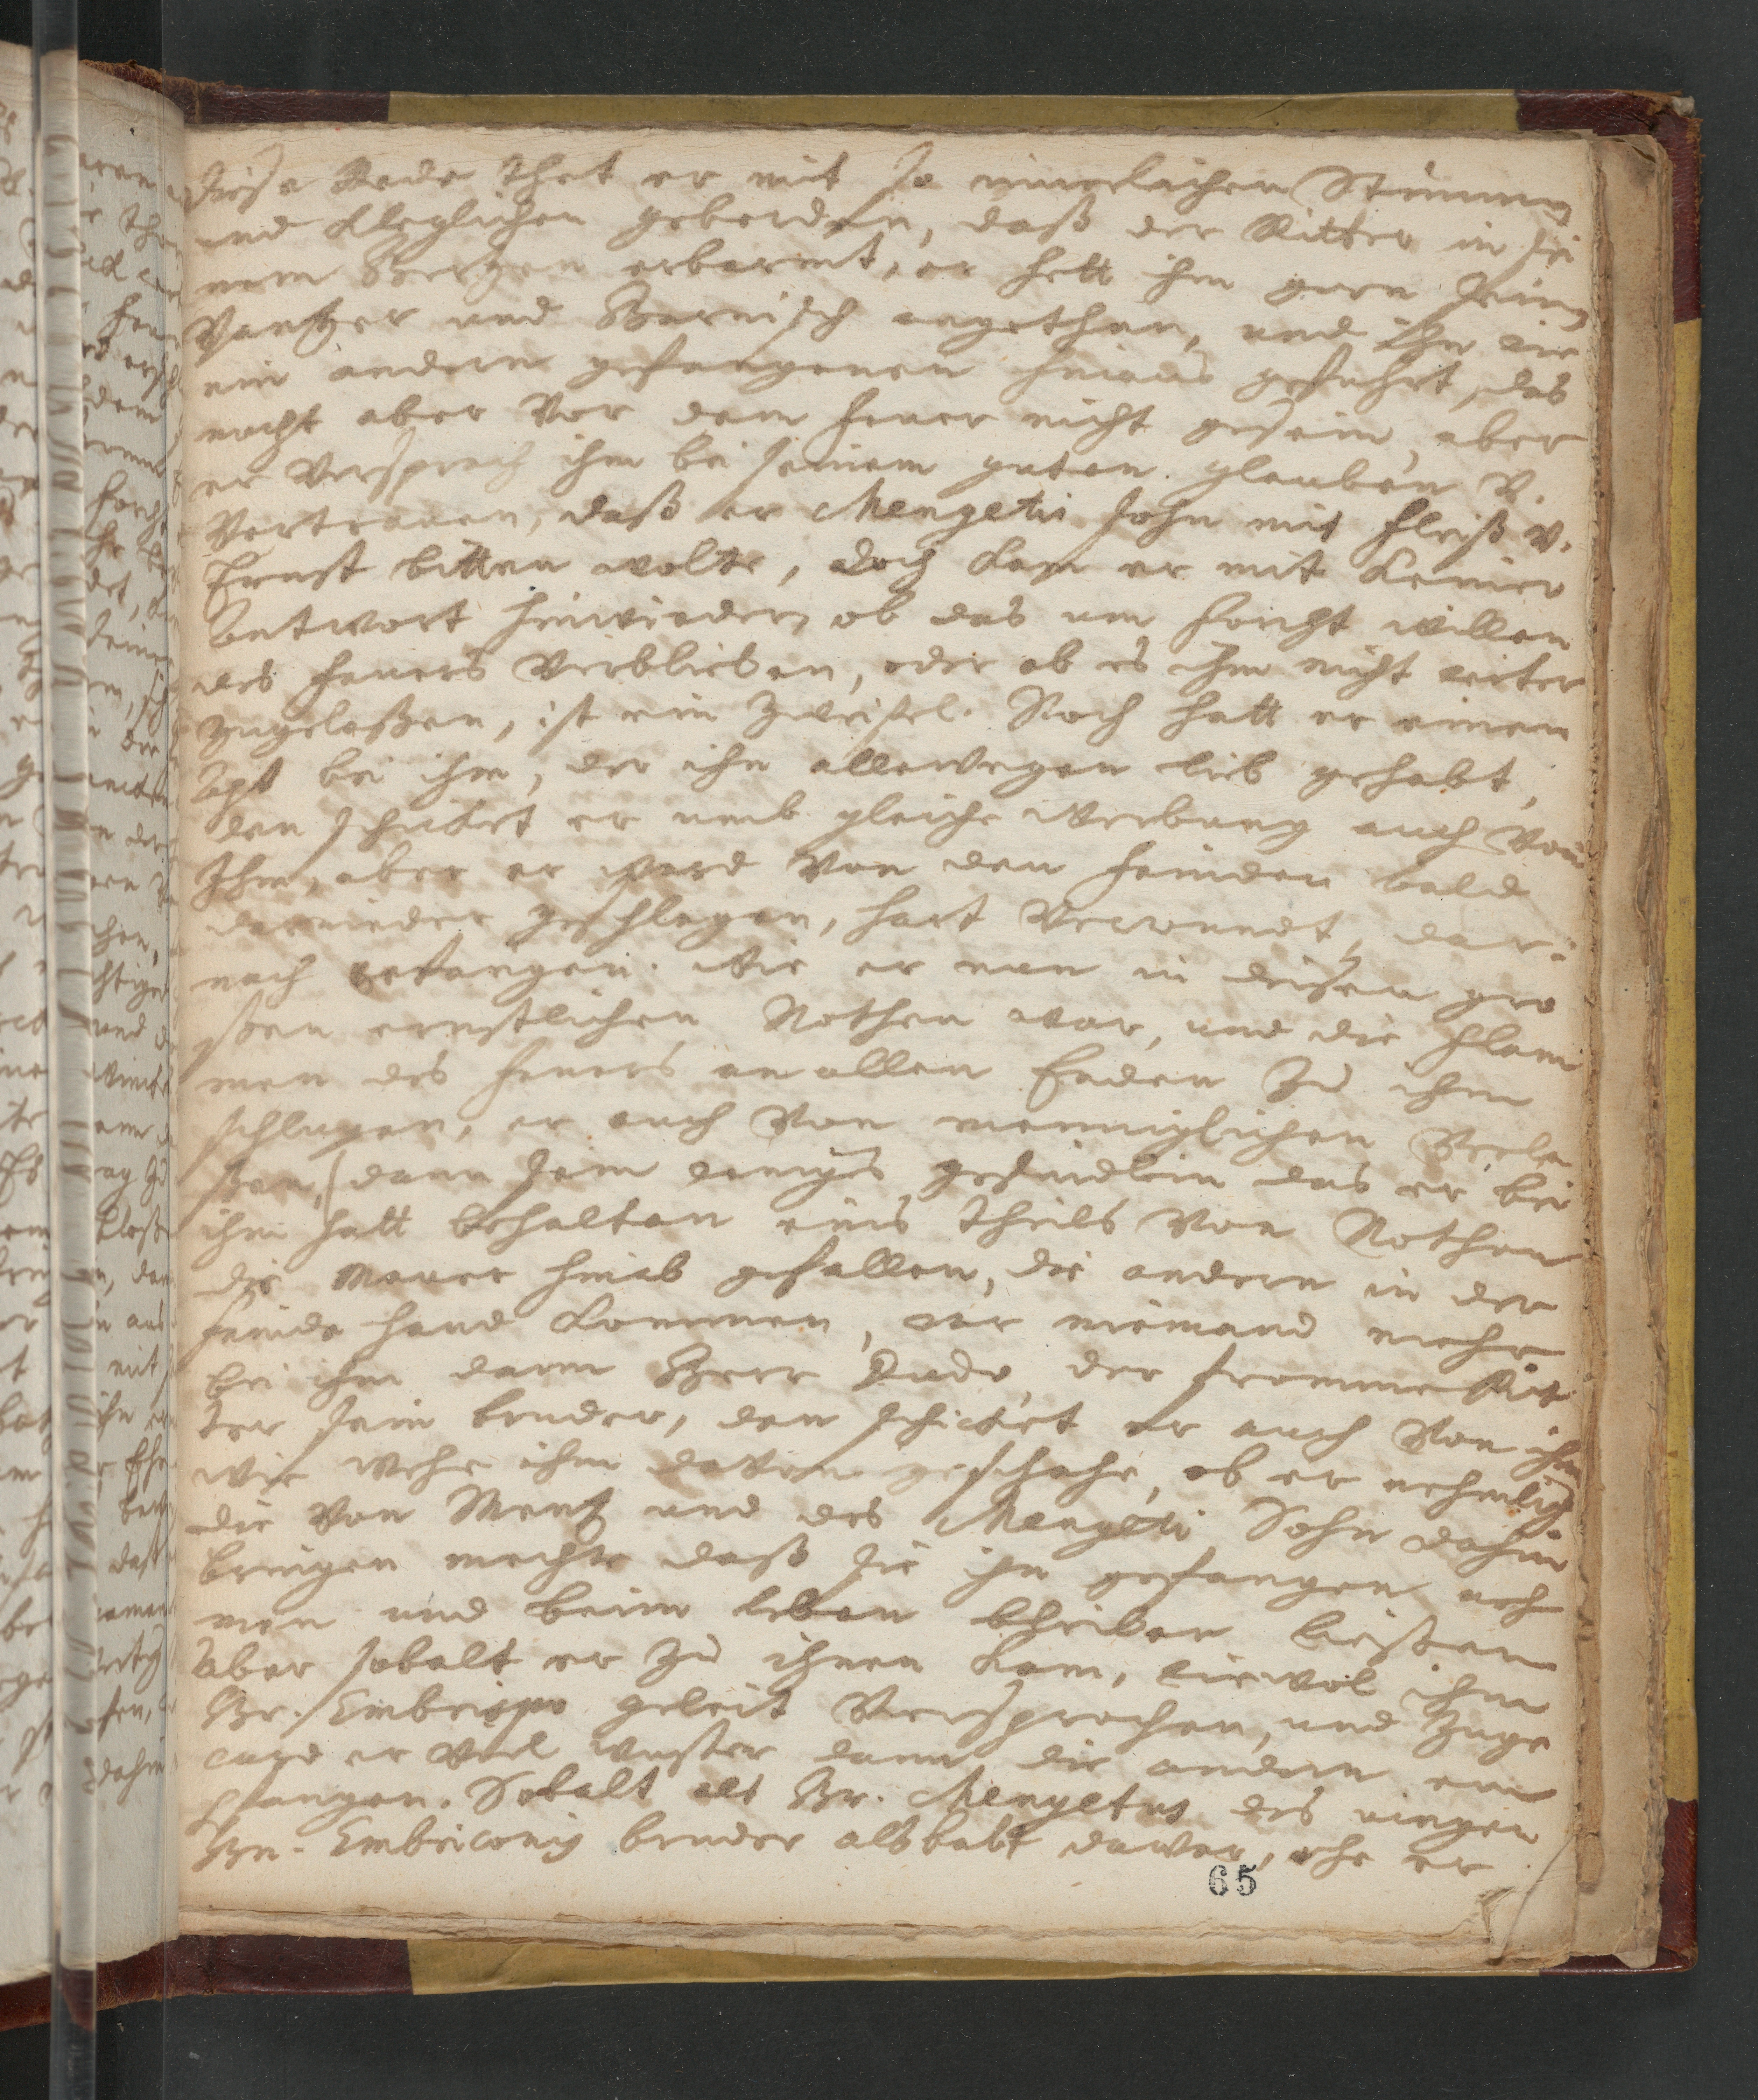 diese Rede thet er mit so innerlichen Stimmen
und kleglichen geberden, daß der Ritter in sei
nem Herzen erbarmt, er hett ihm gern seinen
Pantzer und Harnisch angethan, und ihn wie
ein andern gefangenen hinaus gefuhrt, das
mocht aber vor dem feuer nicht gesein, aber
er versprach ihm bei seinem guten glauben v.
Vertrauen, daß er Mengetii sohn mit fleiß v.
Ernst bitten wolte, doch kam er mit keiner
Antwort hinwieder, ob das um forcht willen
des feuers verblieben, oder ob es ihm nicht weiter
zugelaßen, ist ein Zweifel. Noch hatt er einen
Apt bei ihm, der ihn allewegen lieb gehabt,
den schicket er umb gleiche Werbung auch von
Ihm, aber er ward von den feinden bald
darnieder geschlagen, hart verwundt, dar-
nach gefangen. Wie er nun in diesen gro
ßen ernstlichen Nothen war, und die flam
men des feuers an allen Enden zu ihm
schlugen, er auch von menniglichen verla
ßen, (dann sein weniges gesindlein das er bei
ihm hatt behalten eins theils von Nothen
die Mauer hinab gefallen, die andern in der
feinde hand kommen, war niemand mehr
bei ihm dann Herr Dudo, der fromme Rit
ter sein bruder, den schicket er auch von ihm
wie wehe ihm davon geschahe, ob er nehmlich
die von Mentz und des Mengeti Sohn dahin
bringen mechte daß sie ihn gefangen neh
men und beim leben bleiben ließen
Aber sobalt er zu ihnen kam, wiewol ihm
Hr. Embrico geleit versprochen, und zuge
sagt er viel wuster dann die andern em
pfangen. Sobalt als Hr. Mengetus des iungen
Hn. Embriconis bruder alsbalt davor, ehe er
65